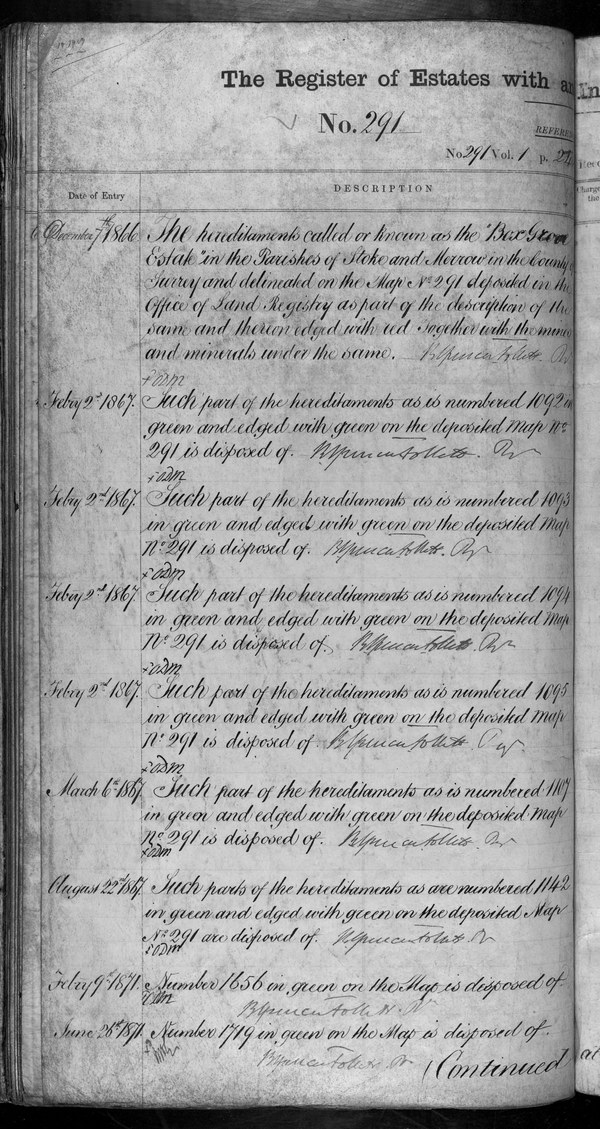 The Register of Estates with an
No. 291
REFEREN
No 291 Vol. 1 p. 22
Date of Entry
DESCRIPTION
December 7th 1866 The hereditaments called or known as the "Box Grove
Estate" in the Parishes of Stoke and Merrow in the County
Surrey and delineated on the Map No 291 deposited in the
Office of Land Registry as part of the description of the
same and thereon edged with red Together with the mines
and minerals under the same. B Spencer Follett. Rr
Febry 2d 1867. Such part of the hereditaments as is numbered 1092 in
green and edged with green on the deposited Map No
291 is disposed of. B Spencer Follett. Rr
Febry 2nd 1867. Such part of the hereditaments as is numbered 1093
in green and edged with green on the deposited Map
No 291 is disposed of. B Spencer Follett. Rr
Febry 2nd 1867. Such part of the hereditaments as is numbered 1094
in green and edged with green on the deposited Map
No 291 is disposed of. B Spencer Follett. Rr
Febry 2nd 1867. Such part of the hereditaments as is numbered 1095
in green and edged with green on the deposited Map
No 291 is disposed of. B Spencer Follett. Rr
March 6th 1867 Such part of the hereditaments as is numbered 1107
in green and edged with green on the deposited Map
No 291 is disposed of. B Spencer Follett. Rr
August 22nd 1867. Such parts of the hereditaments as are numbered 1142
in green and edged with green on the deposited Map
No 291 are disposed of. B Spencer Follett Rr
Febry 9th 1871. Number 1656 in green on the Map is disposed of
B Spencer Follett Rr
June 26th 1871 Number 1719 in green on the Map is disposed of
B Spencer Follett Rr
(Continued